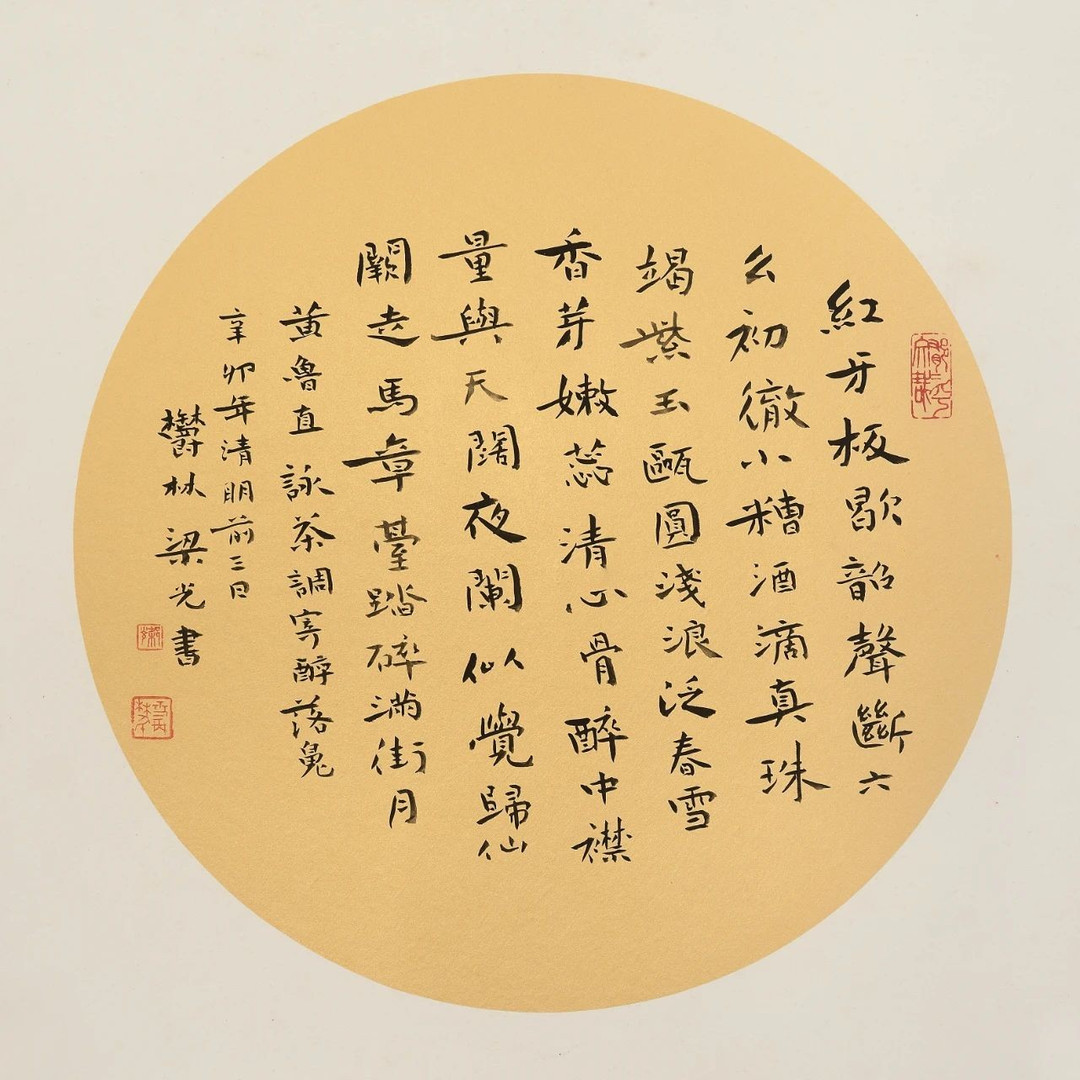 紅牙板歇韶聲斷六
么初徹小糟酒滴真珠
竭紫玉甌圓淺浪泛春雪
香芽嫩蕊清心骨醉中襟
量與天闊夜闌似覺歸仙
闕走馬章臺踏碎滿街月
黃魯直詠茶調寄醉落
辛卯年清明前三日
鬱林梁光書